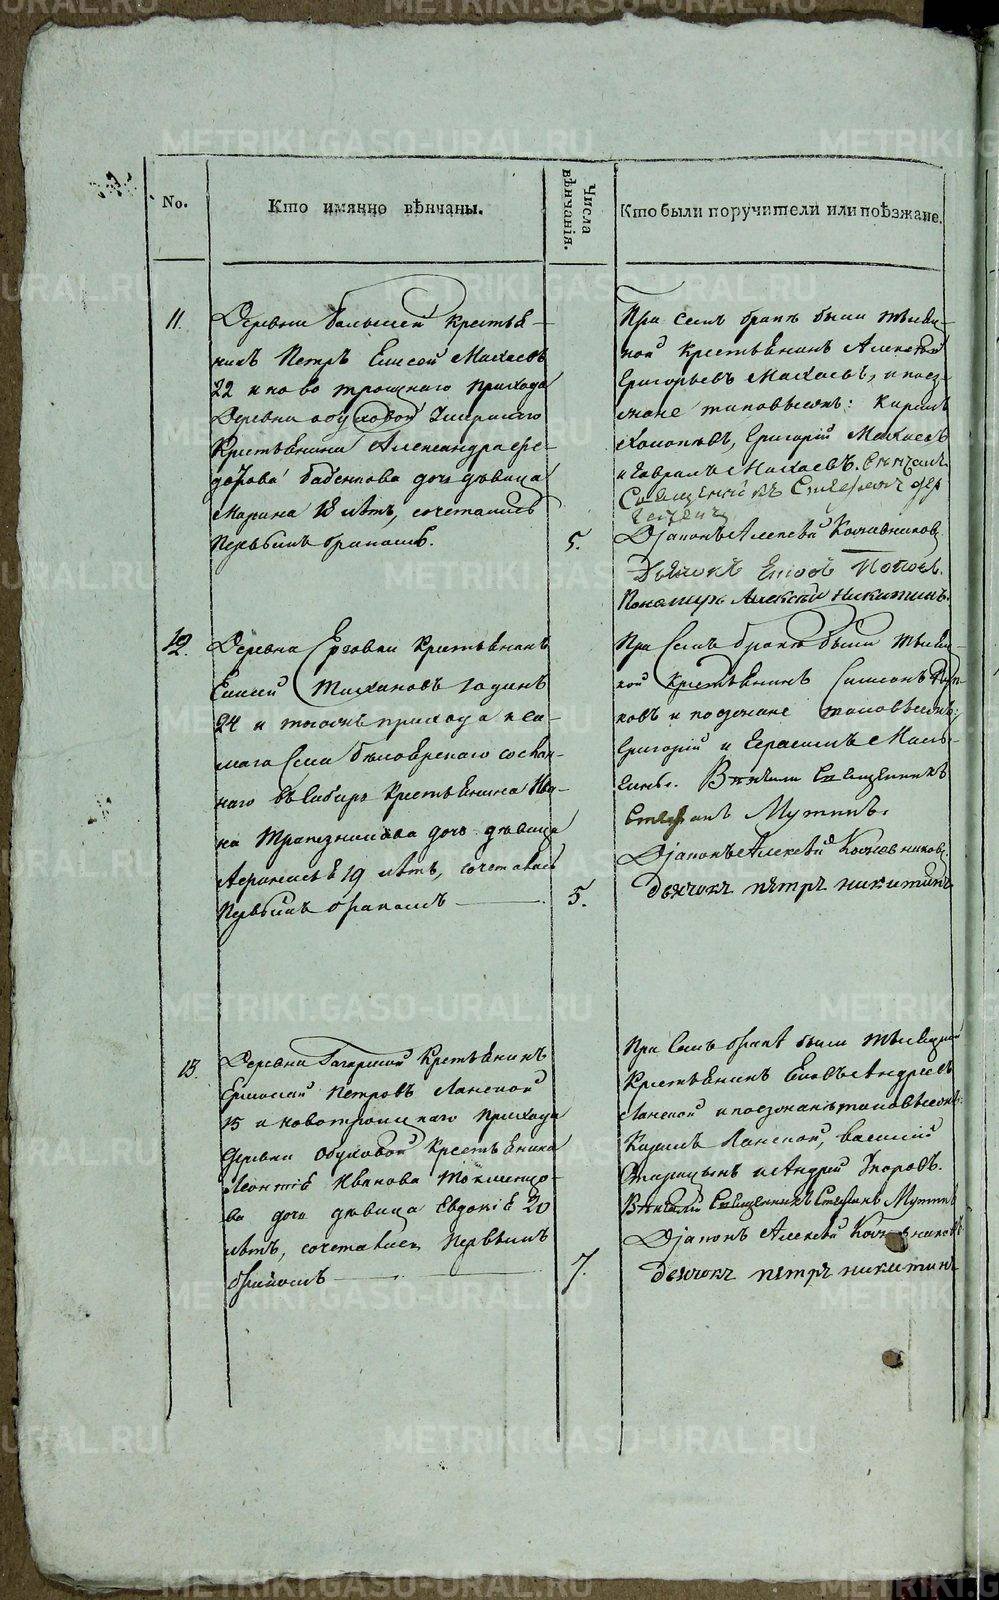 No.
Кто имянно вѣнчаны.
Числа вѣнчанія.
Кто были поручители или поѣзжане.
11.
Деревни Большей крестья-
нинъ Петръ Елисеи Махаевъ
22 и ново троицкаго прихода
Деревни обуховой
Крестьянина Александра Фе-
дорова дочь дѣвица
Марина 18 лѣтъ, сочетались
первымъ бракомъ.
5.
При семъ бракѣ были тысяц-
кой крестьянинъ Алексѣй
Григорьевъ Махаевъ, и поез-
жане таковыежъ: Кирилъ
Григорій Махаевъ
и Гаврилъ Махаевъ.
Священникъ Стефанъ
Діаконъ Алексѣй Кочевниковъ
Дьячокъ Поповъ.
Понамарь Алексѣй Никитинъ.
12.
Деревни Крестьянинъ
Елисей Тихановъ годинъ
24 и тогожъ прихода и са-
маго Села сослан-
наго въ Сибирь Крестьянина Ива-
на Трапезникова дочь дѣвица
19 лѣтъ, сочетались
первымъ бракомъ
5.
При Семъ бракѣ были тысяц-
кой крестьянинъ Симеонъ
ковъ и поезжане таковыежъ:
Григорій и Герасимъ
Вѣнчали Священникъ
Стефанъ Мутинъ.
Діаконъ Алексѣй Кочевниковъ.
дьячокъ пѣтръ никитинъ
13.
Деревни Гагарской Крестьянинъ
Ермолай Петровъ Ланской
15 и новотроицкаго прихода
Деревни Обуховой Крестьянина
Леонтія Иванова
ва дочь дѣвица Евдокія 20
лѣтъ, сочетались Первымъ
бракомъ
7.
При Семъ бракѣ были тысяцкой
Крестьянинъ Андреевъ
Ланской и поезжане таковыежъ:
Кирилъ Ланской, Василій
и Андрей
Вѣнчали Священникъ Стефанъ Мутинъ
Діаконъ Алексѣй Кочевниковъ
дьячокъ пѣтръ никитинъ
METRIKI.GASO-URAL.RU